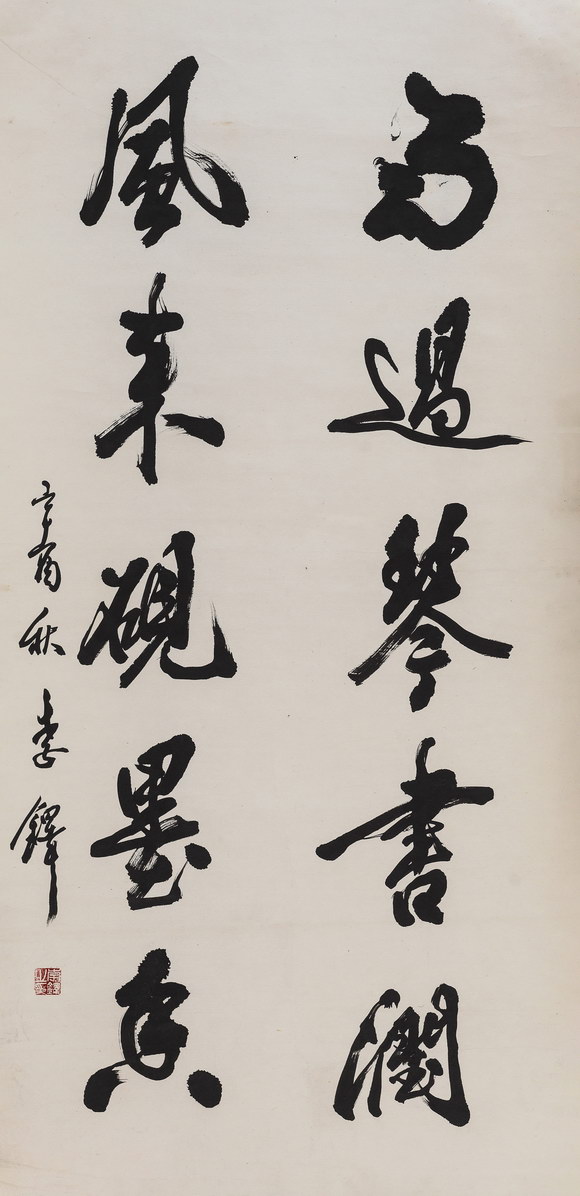 雨過琴書潤
風来硯墨香
辛酉秋李鐸